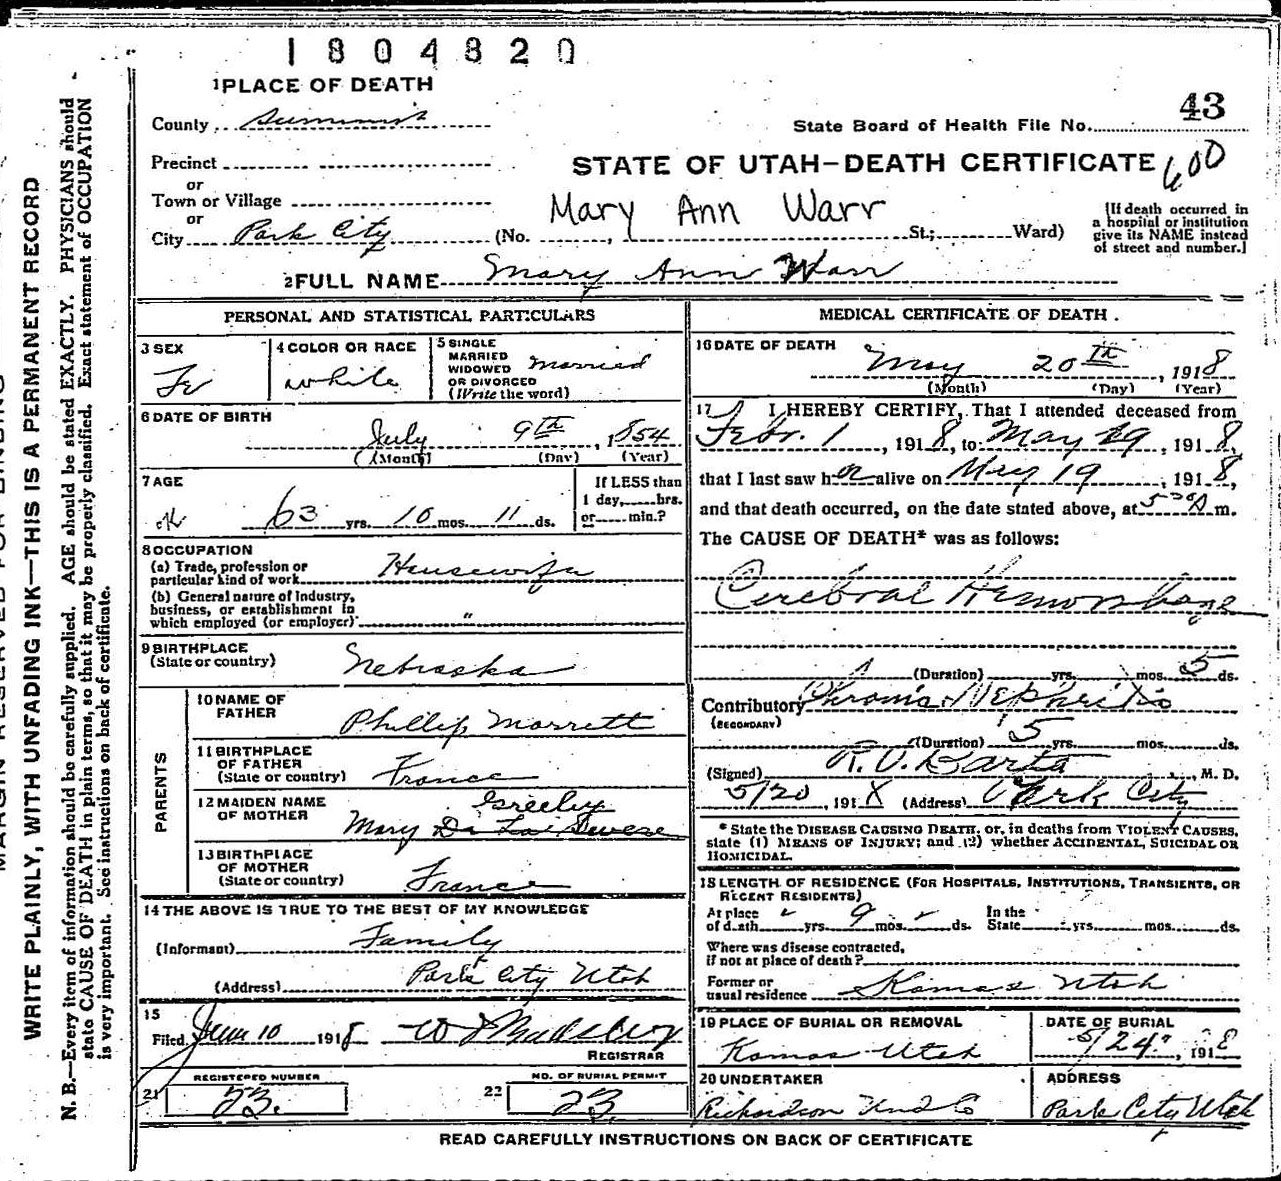 1804820
1 PLACE OF DEATH
43
County Summit
State Board of Health File No.
Precinct
STATE OF UTAH—DEATH CERTIFICATE 600
or
Town or Village
Mary Ann Warr
or
City Park City (No. , St.; Ward)
[If death occurred in
a hospital or institution
give its NAME instead
of street and number.]
2 FULL NAME Mary Ann Warr
PERSONAL AND STATISTICAL PARTICULARS
3 SEX
Fe
4 COLOR OR RACE
white
5 SINGLE
MARRIED
WIDOWED
OR DIVORCED
(Write the word)
married
6 DATE OF BIRTH
July 9th, 1854
(Month) (Day) (Year)
7 AGE
ok 63 yrs. 10 mos. 11 ds.
If LESS than
1 day, hrs.
or min.?
8 OCCUPATION
(a) Trade, profession or
particular kind of work Housewife
(b) General nature of industry,
business, or establishment in
which employed (or employer) "
9 BIRTHPLACE
(State or country) Nebraska
PARENTS
10 NAME OF
FATHER Phillip Morrett
11 BIRTHPLACE
OF FATHER
(State or country) France
12 MAIDEN NAME
OF MOTHER
Greeley
Mary
13 BIRTHPLACE
OF MOTHER
(State or country) France
14 THE ABOVE IS TRUE TO THE BEST OF MY KNOWLEDGE
(Informant) Family
(Address) Park City Utah
15
Filed June 10 1918
REGISTRAR
REGISTERED NUMBER
21 23.
NO. OF BURIAL PERMIT
22 23
MEDICAL CERTIFICATE OF DEATH.
16 DATE OF DEATH
May 20th, 1918
(Month) (Day) (Year)
17 I HEREBY CERTIFY, That I attended deceased from
Febr. 1, 1918, to May 19, 1918,
that I last saw her alive on May 19, 1918,
and that death occurred, on the date stated above, at 5 30 A m.
The CAUSE OF DEATH* was as follows:
Cerebral Hemorrhage
(Duration) yrs. mos. 5 ds.
Contributory Chronic Nephritis
(SECONDARY)
(Duration) 5 yrs. mos. ds.
(Signed) R. V. Barta, M. D.
5/20, 1918 (Address) Park City
* State the DISEASE CAUSING DEATH, or, in deaths from VIOLENT CAUSES,
state (1) MEANS OF INJURY; and (2) whether ACCIDENTAL, SUICIDAL OR
HOMICIDAL.
18 LENGTH OF RESIDENCE (FOR HOSPITALS, INSTITUTIONS, TRANSIENTS, OR
RECENT RESIDENTS)
At place
of death yrs. 9 mos. ds.
In the
State yrs. mos. ds.
Where was disease contracted,
if not at place of death?
Former or
usual residence Kamas Utah
19 PLACE OF BURIAL OR REMOVAL
Kamas Utah
DATE OF BURIAL
5/24, 1918
20 UNDERTAKER
Richardson Und Co
ADDRESS
Park City Utah
READ CAREFULLY INSTRUCTIONS ON BACK OF CERTIFICATE
MARGIN RESERVED FOR BINDING
WRITE PLAINLY, WITH UNFADING INK—THIS IS A PERMANENT RECORD
N. B.—Every item of information should be carefully supplied. AGE should be stated EXACTLY. PHYSICIANS should
state CAUSE OF DEATH in plain terms, so that it may be properly classified. Exact statement of OCCUPATION
is very important. See instructions on back of certificate.